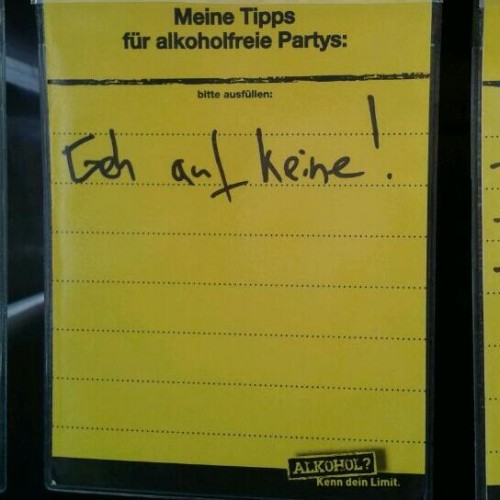 Meine Tipps
für alkoholfreie Partys:
bitte ausfüllen:
Geh auf keine!
ALKOHOL?
Kenn dein Limit.